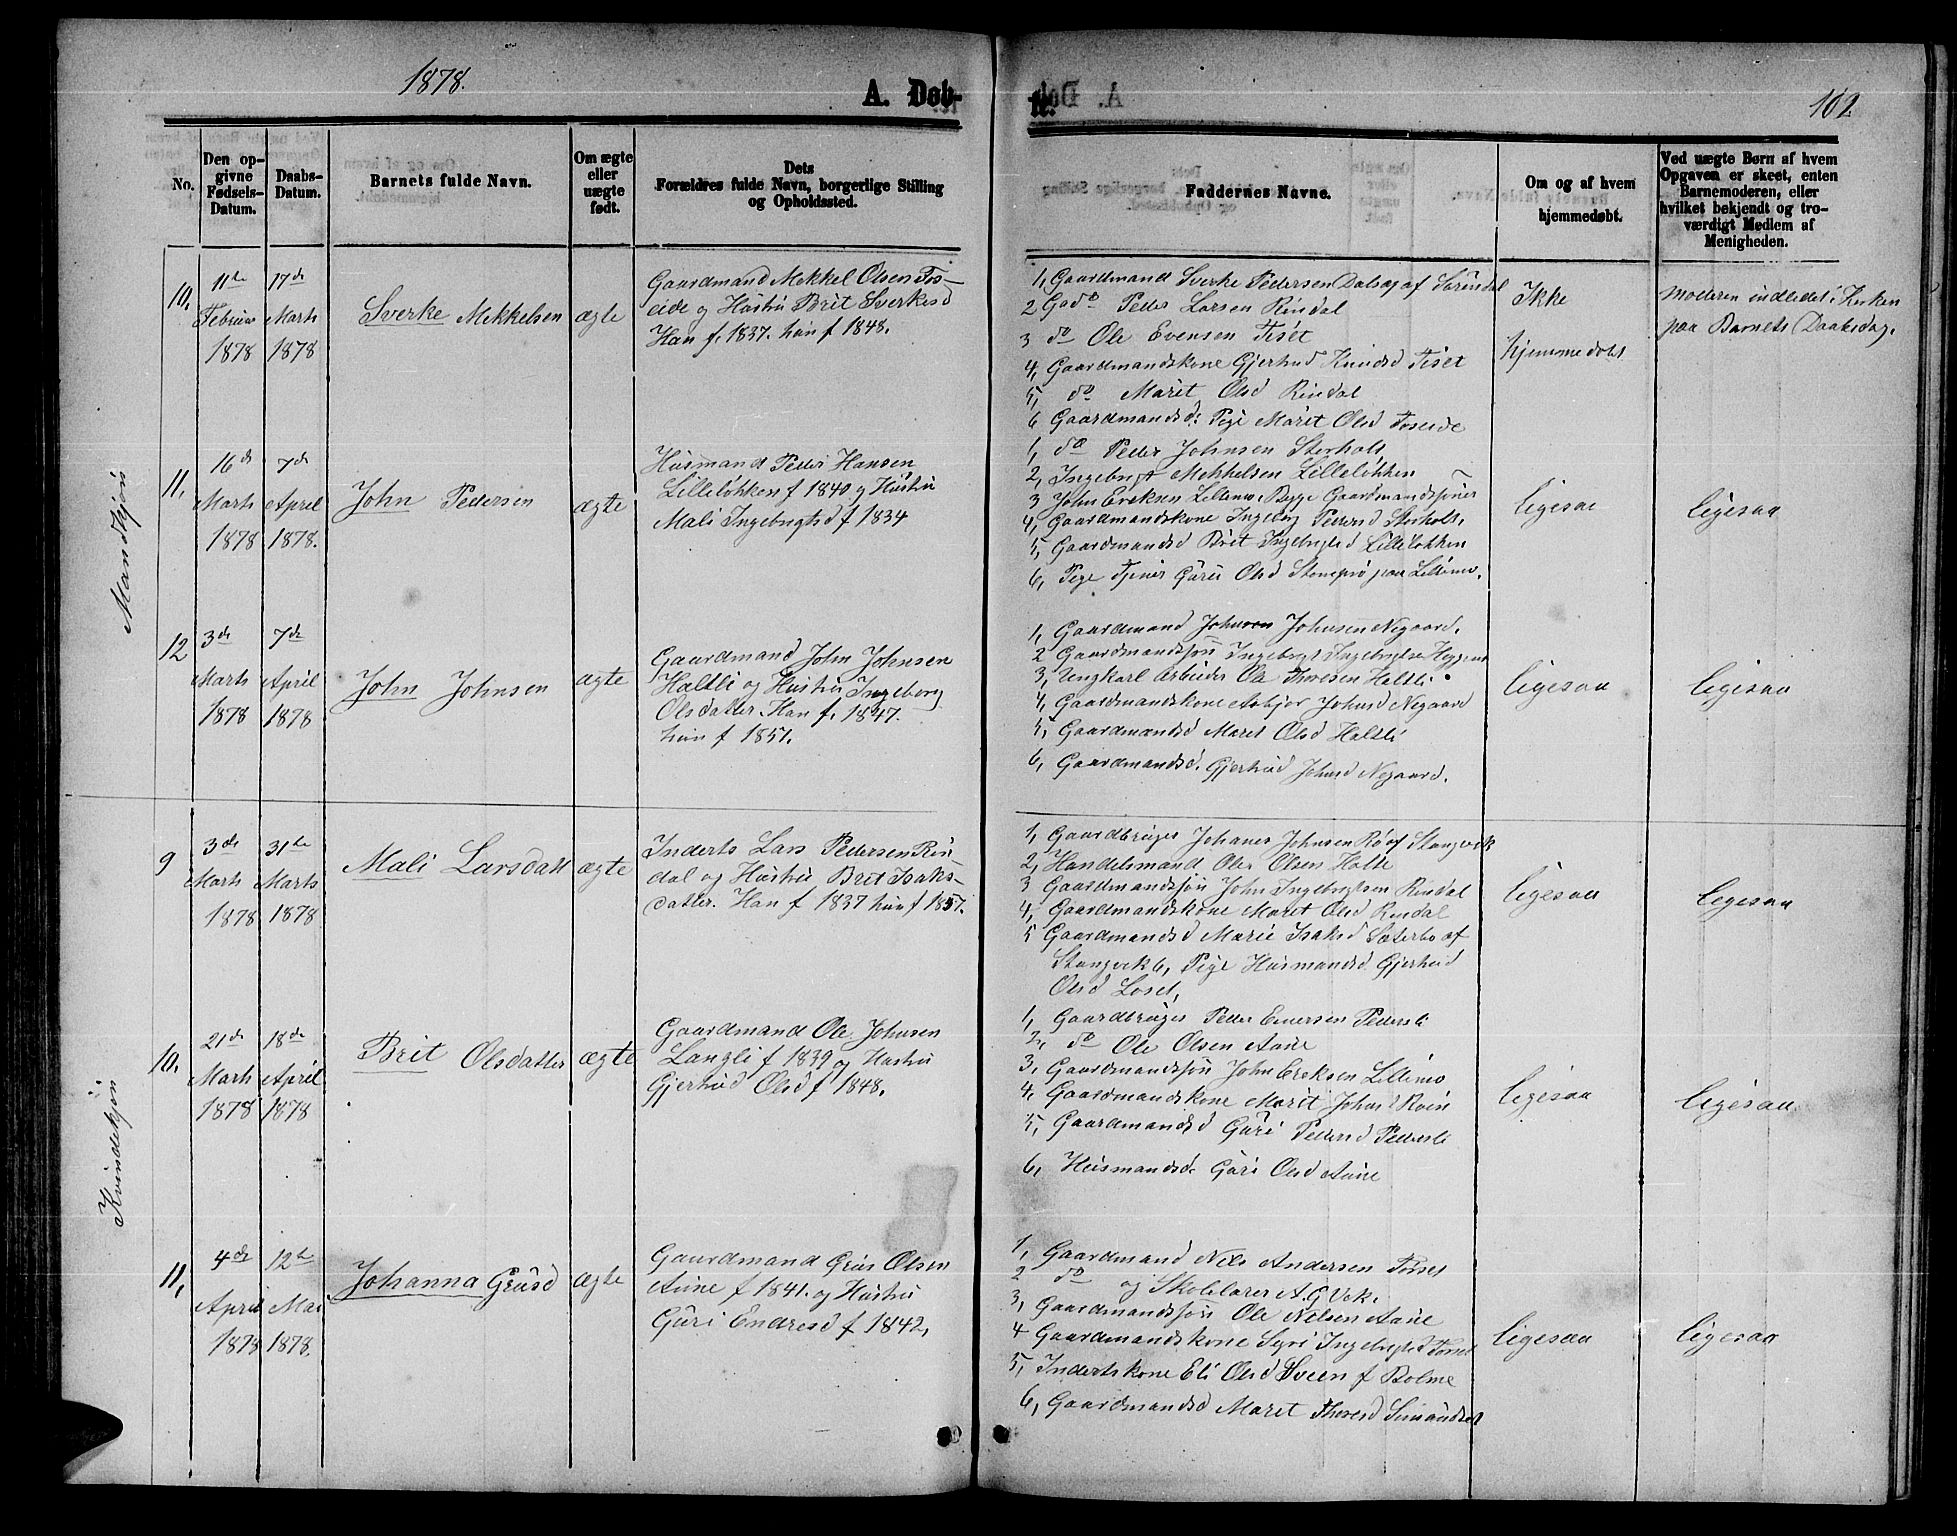 1878.
A. Døb-
te.
102
No.
Den op-
givne
Fødsels-
Datum.
Daabs-
Datum.
Barnets fulde Navn.
Om ægte
eller
uægte
født.
Dets
Forældres fulde Navn, borgerlige Stilling
og Opholdssted.
Faddernes Navne.
Om og af hvem
hjemmedøbt.
Ved uægte Børn af hvem
Opgaven er skeet, enten
Barnemoderen, eller
hvilket bekjendt og tro-
værdigt Medlem af
Menigheden.
Mandkjøn
10.
11te
Februar
1878
17de
Marts
1878
Sverke Mekkelsen
ægte
Gaardmand Mekkel Olsen Fos-
eide og Hustru Brit Sverkesd
Han f. 1837. hun f 1848.
1, Gaardmand Sverke Pedersen Dalsøg af Surendal
2 Gsdo Peder Larsen Rindal
3 do Ole Evensen Tiset
4, Gaardmandskone Gjertrud Knudsd Tiset
5, do Marit Olsd Rindal
6 Gaardmandsd: Pige Marit Olsd Foseide
Ikke
hjemmedøbt
Moderen indledet i Kirken
paa Barnets Daabsdag.
11,
16de
Marts
1878
7de
April
1878.
John Pedersen
ægte
Husmand Peder Hansen
Lilleløkken f 1840 og Hustru
Mali Ingebrigtsd f 1834
1, do Peder Johnsen Storholt
2, Ingebrigt Mekkelsen Lilleløkken
3 John Ereksen Lillemo, Begge Gaardmandsjøner
4, Gaardmandskone Ingeborg Pedersd Storholt,
5, Gaardmandsd Brit Ingebrigtsd Lilleløkken
6, Pige Tjener Guri Olsd Stomprø paa Lillemo.
ligesaa
ligesaa
12
3de
Marts
1878
7de
April
1878
John Johnsen
ægte
Gaardmand John Johnsen
Haltli og Hustru Ingeborg
Olsdatter. Han f. 1847.
hun f 1851.
1, Gaardmand Johnsen Johnsen Negaard.
2 Gaardmandsjøn Ingebrigt Ingebrigtsen
3, Ungkarl Arbeider Ole Thoresen Haltli
4, Gaardmandskone Asbjør Johnsd Negaard
5, Gaardmandsd Maret Olsd Haltli
6, Gaardmandsd. Gjertrud Johnsd Negaard.
ligesaa
ligesaa
Kvindekjøn
9
3de
Marts
1878
31te
Marts
1878
Mali Larsdatt
ægte
Inderts Lars Pedersen Rin-
dal og Hustru Brit Isaks-
datter. Han f 1837 hun f 1857.
1, Gaardbruger Johanes Johnsen Rø af Stangvik
2, Handelsmand Ole Olsen Halle
3 Gaardmandsjøn John Ingebrigtsen Rindal
4, Gaardmandskone Maret Olsd Rindal
5 Gaardmandsd Marie Isaksd Sæterbø af
Stangvik 6, Pige Husmandsd Gjertrud
Olsd Løset,
ligesaa
ligesaa
10.
21de
Marts
1878
18de
April
1878
Brit Olsdatter
ægte
Gaardmand Ole Johnsen
Langli f 1839 og Hustru
Gjertrud Olsd f 1848.
1, Gaardbruger Peder Pedersli
2, do Ole Olsen Aune
3, Gaardmandsjøn John Ereksen Lillemo
4, Gaardmandskone Marit Johnsd Røen
5, Gaardmandsd Guri Pedersd Pedersli
6, Husmandsd. Guri Olsd Aune
ligesaa
ligesaa.
11,
4de
April
1878
12te
Mai
1878.
Johanna Grusd
ægte
Gaardmand Grus Olsen
Aune f 1841. og Hustru
Guri Endresd f 1842,
1, Gaardmand Nils Andersen Torset
2 do og Skolelærer A. G Vek.
3, Gaardmandsjøn Ole Nelsen Aune
4 Gaardmandskone Syri Ingebrigtsd Torset
5, Indertskone Eli Olsd Sveen f Bolme
6, Gaardmandsd Maret Thoresd
ligesaa
ligesaa